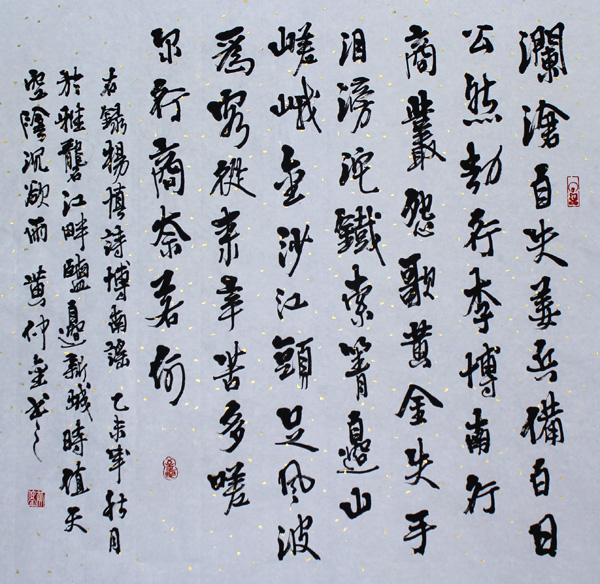 瀾滄自失姜兵備白日
公然劫行李博南行
商叢怨歌黄金失手
泪滂沱鐵索箐邊山
嵯峨金沙江頭足風波
爲客從来辛苦多嗟
尔行商奈若何
右録楊慎詩博南謡 乙未歲秋月
於雅礱江畔鹽邊新城時值天
空陰沉欲雨 黄仲金书之